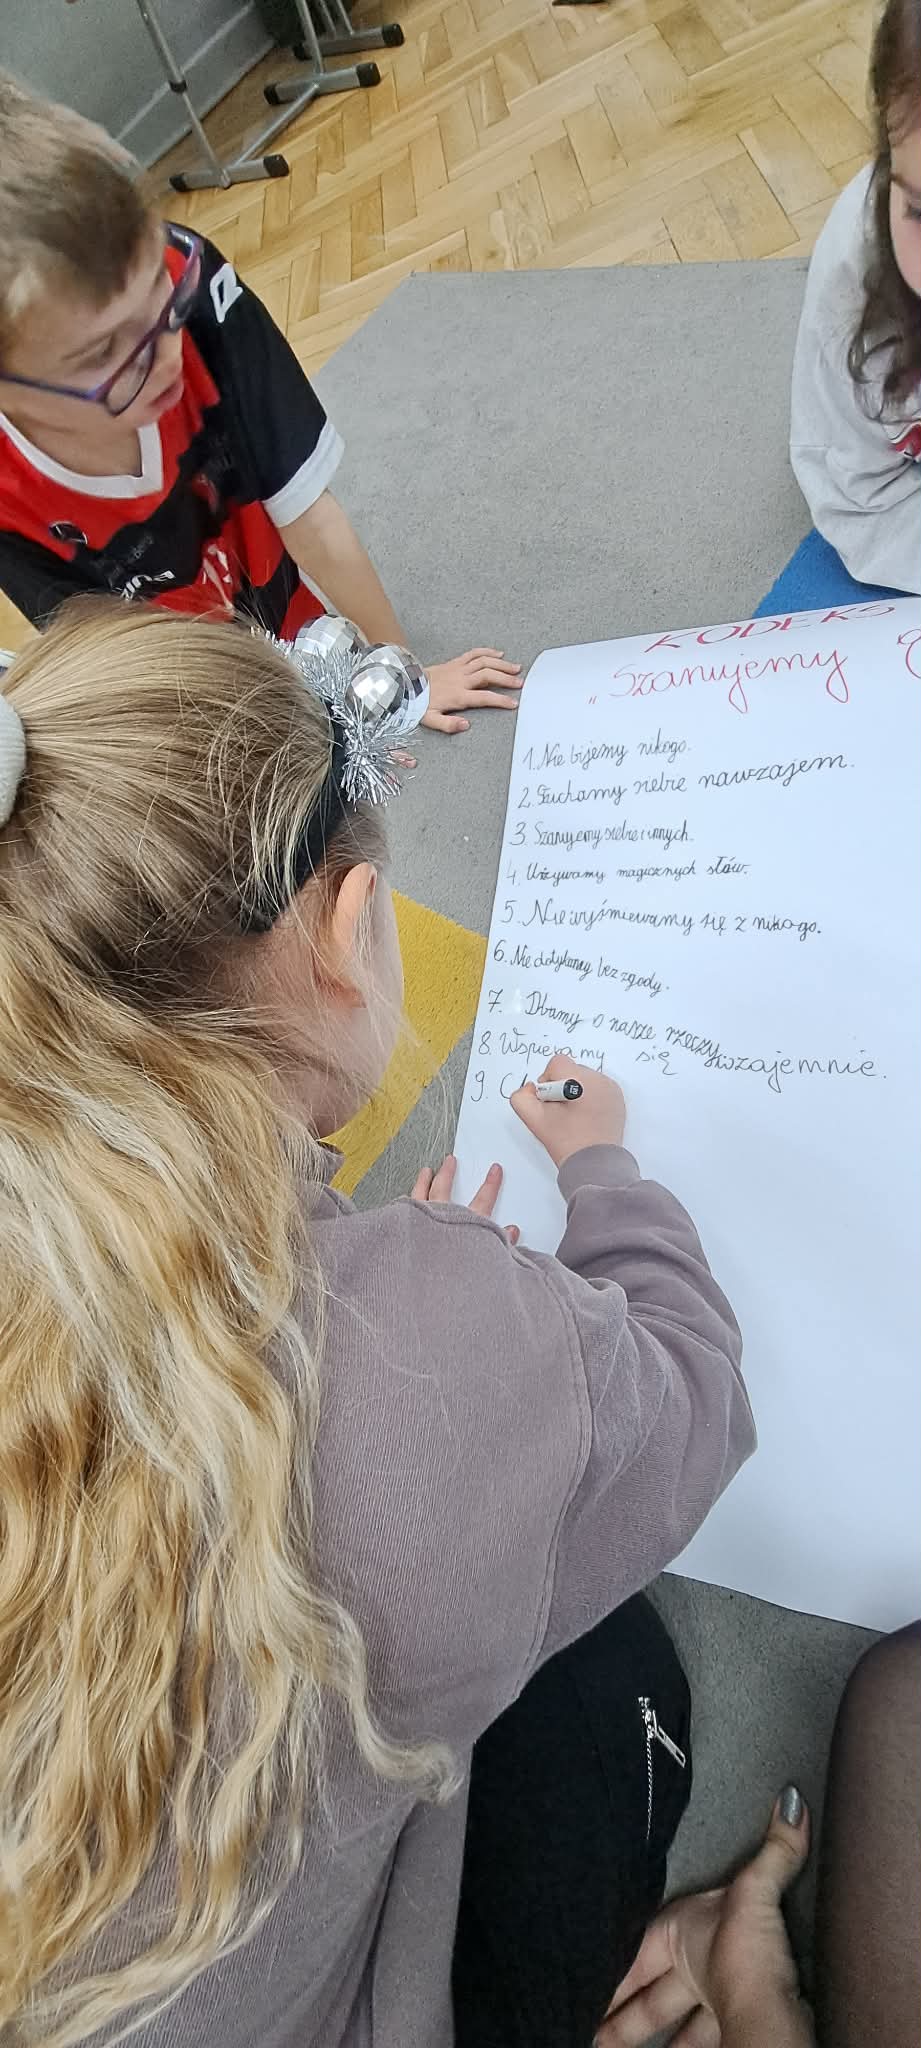 KODEKS
„Szanujemy
1. Nie bijemy nikogo.
2. Słuchamy siebie nawzajem.
3. Szanujemy siebie i innych.
4. Używamy magicznych słów.
5. Nie wyśmiewamy się z nikogo.
6. Nie dotykamy bez zgody.
7. Dbamy o nasze rzeczy.
8. Wspieramy się wzajemnie.
9. C